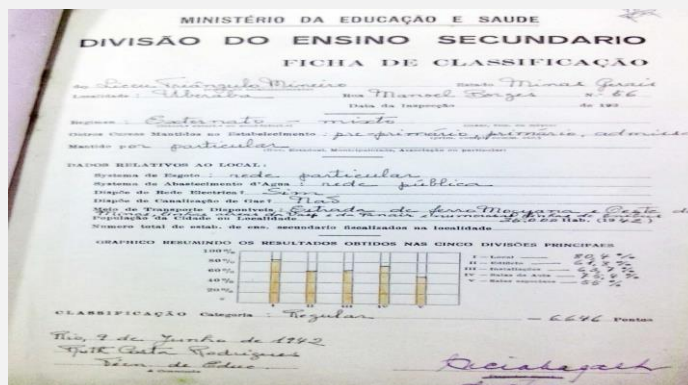 MINISTÉRIO DA EDUCAÇÃO E SAUDE
DIVISÃO DO ENSINO SECUNDARIO
FICHA DE CLASSIFICAÇÃO
do Liceu Triângulo Mineiro Estado Minas Gerais
Localidade: Uberaba Rua Manoel Borges n.º 66
Data da Inspecção de 193
Regimen: Externato - mixto
Outros Cursos Mantidos no Estabelecimento: pre-primário, primário, admiss
Mantido por particular
DADOS RELATIVOS AO LOCAL:
Systema de Esgoto: rede particular
Systema de Abastecimento d'Agua: rede pública
Dispõe de Rede Electrica? Sim
Dispõe de Canalização de Gaz? Não
Meio de Transporte Disponiveis: Estrada de ferro Mogyana e Oeste de
Minas, linhas aereas da
População da Cidade ou Localidade hab. (1942)
Numero total de estab. de ens. secundario fiscalizados na localidade
GRAPHICO RESUMINDO OS RESULTADOS OBTIDOS NAS CINCO DIVISÕES PRINCIPAES
100%
80%
60%
40%
20%
I II III IV V
I - Local 80,4 %
II - Edificio %
III - Installações %
IV - Salas de Aula %
V - Salas especiaes %
CLASSIFICAÇÃO Categoria: Regular - 6646 Pontos
Rio, 9 de Junho de 1942
Ruth Costa Rodrigues
Técn. de Educ.